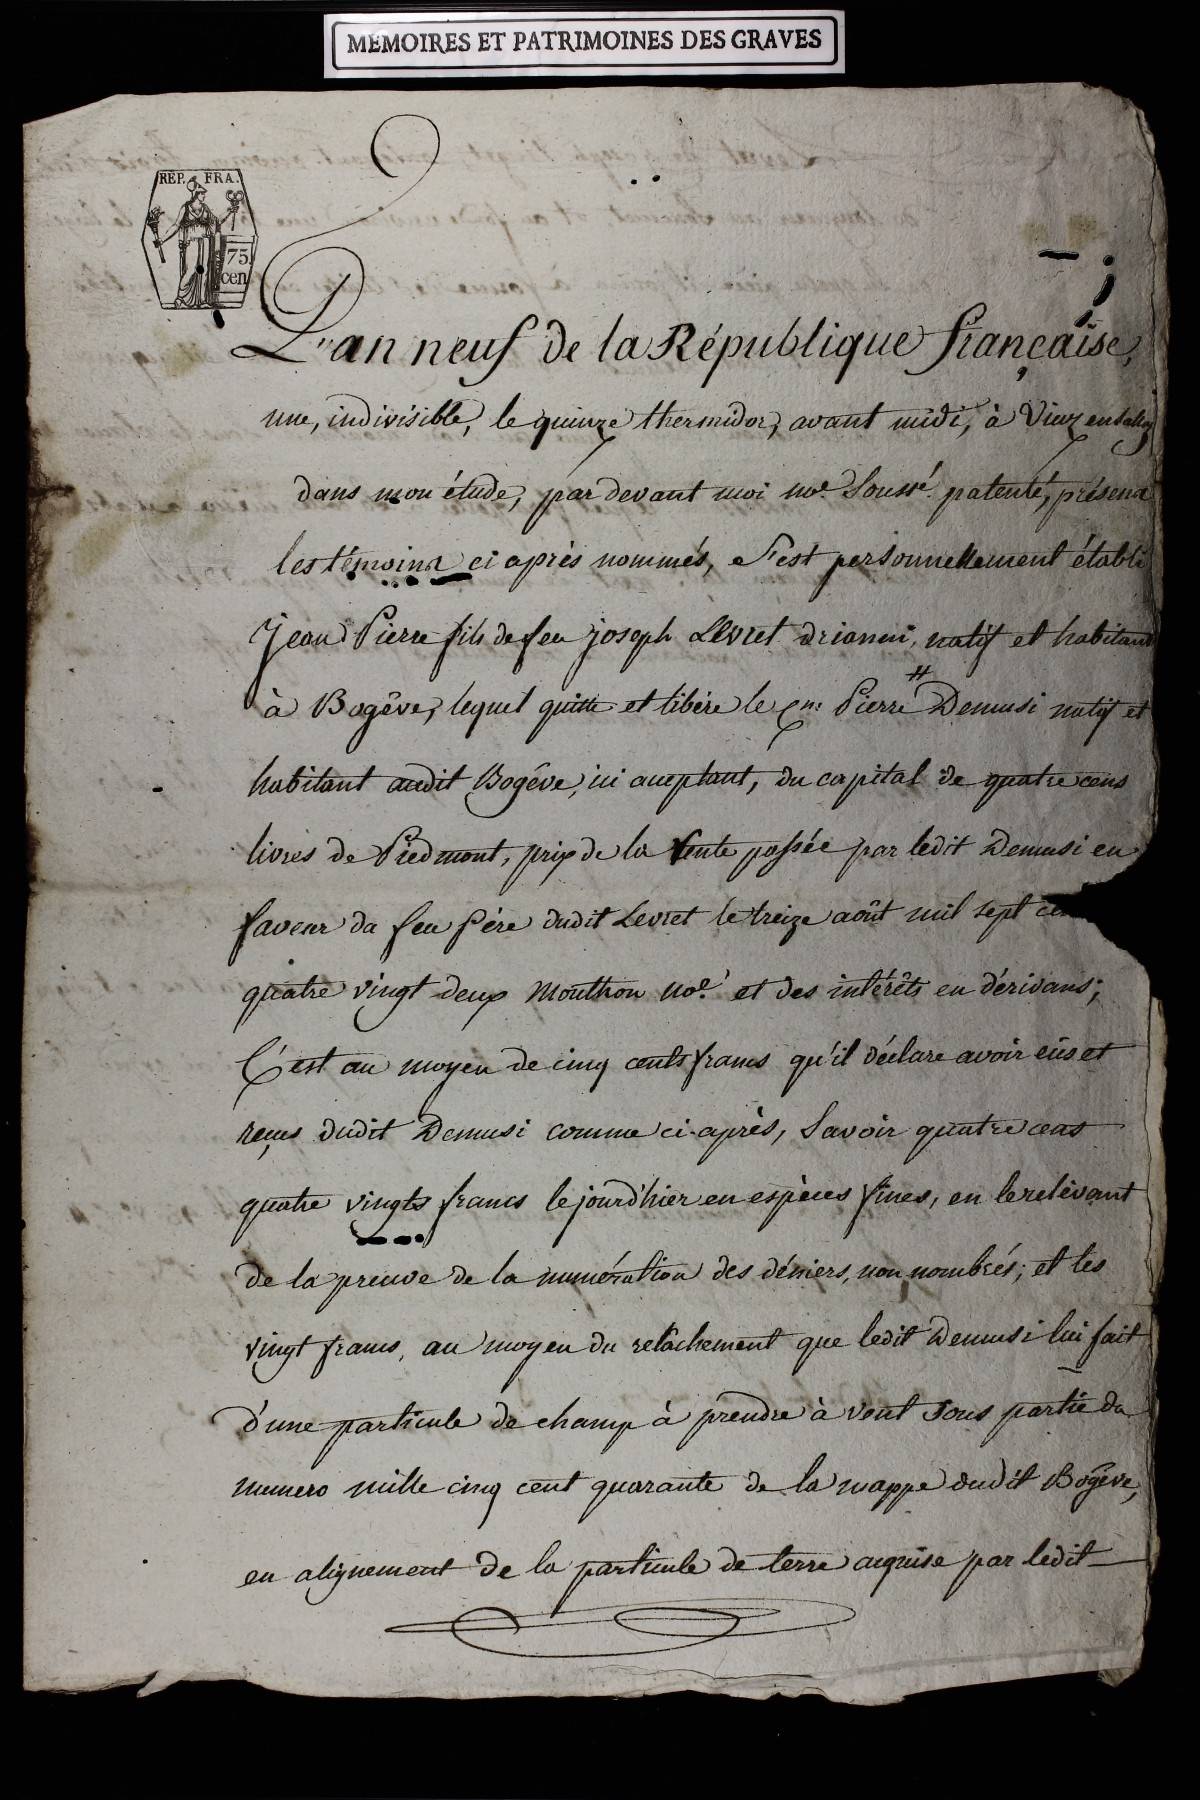 MEMOIRES ET PATRIMOINES DES GRAVES
REP. FRA.
75
cen
L'an neuf de la République française,
une, indivisible, le quinze thermidor, avant midi, à Viuz en Sallaz
dans mon étude, par devant moi nore. Soussé. patenté, présens
les témoins ci après nommés, s'est personnellement établi
Jean Pierre fils de feu joseph Levret natif et habitant
à Bogêve, lequel quitte et libère le Cen. Pierre # Demusi natif et
habitant audit Bogêve, ici acceptant, du capital de quatre cens
livres de Piedmont, prix de la vente passée par ledit Demusi en
faveur du feu Père dudit Levret le treize août mil sept
quatre vingt deux Mouthon nore. et des intérêts en dérivans;
C'est au moyen de cinq cents francs qu'il déclare avoir eûs et
reçus dudit Demusi comme ci-après, Savoir quatre cens
quatre vingts francs le jourd'hier en espèces fines, en le relevant
de la preuve de la numération des déniers, non nombrés; et les
vingt francs, au moyen du relâchement que ledit Demusi lui fait
d'une particule de champ à prendre à vent sous partie du
numero mille cinq cent quarante de la mappe dudit Bogêve,
en alignement de la particule de terre acquise par ledit